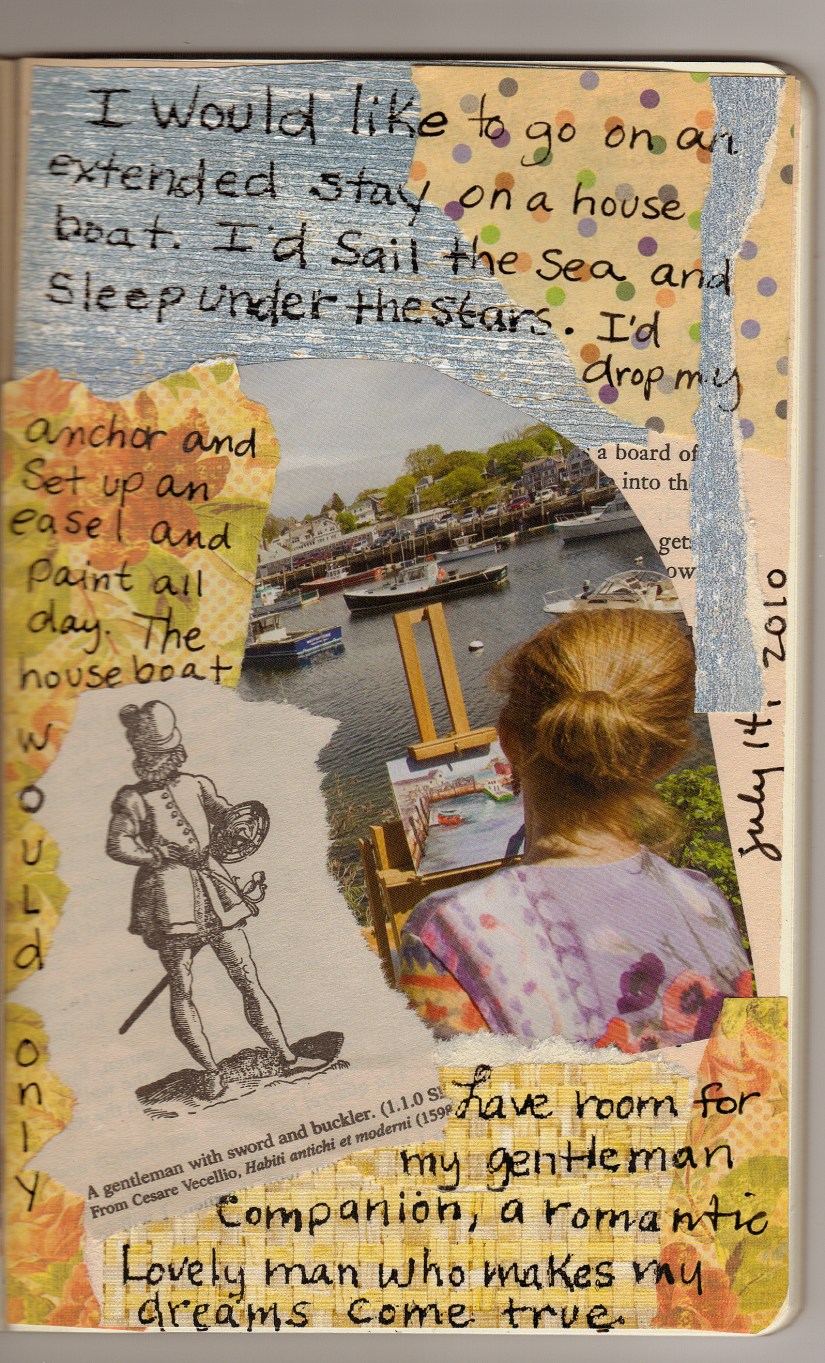 I would like to go on an
extended stay on a house
boat. I'd Sail the Sea and
Sleep under the stars. I'd
drop my
anchor and
Set up an
easel and
paint all
day. The
houseboat
would
only
have room for
my gentleman
Companion, a romantic
Lovely man who makes my
dreams come true.
a board of
into th
gets
ow
July 14, 2010
A gentleman with sword and buckler. (1.1.0
From Cesare Vecellio, Habiti antichi et moderni (159